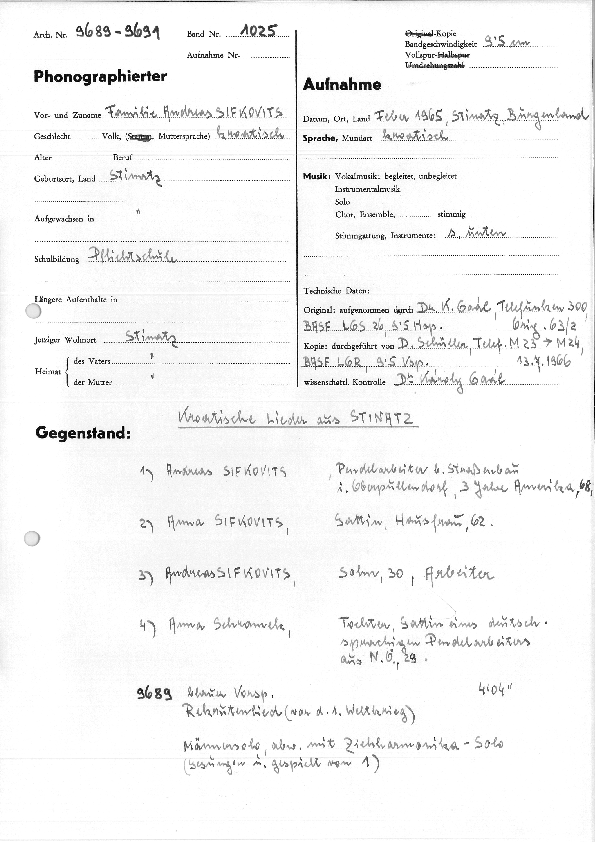 Arch. Nr. 9689-9691
Band Nr. 1025
Aufnahme Nr.
Original-Kopie
Bandgeschwindigkeit 9'5 cm
Vollspur-Halbspur
Umdrehungszahl
Phonographierter
Vor- und Zuname Familie Andreas SIFKOVITS
Geschlecht Volk, (Stamm, Muttersprache) kroatisch
Alter Beruf
Geburtsort, Land Stinatz
Aufgewachsen in "
Schulbildung Pflichtschule
Längere Aufenthalte in
Jetziger Wohnort Stinatz
Heimat { des Vaters "
der Mutter "
Aufnahme
Datum, Ort, Land Feber 1965, Stinatz Burgenland
Sprache, Mundart kroatisch
Musik: Vokalmusik: begleitet, unbegleitet
Instrumentalmusik
Solo
Chor, Ensemble, stimmig
Stimmgattung, Instrumente: s. unten
Technische Daten:
Original: aufgenommen durch Dr. K. Gaál, Telefunken 300,
BASF LGS 26, 9'5 Hsp. Orig. 63/2
Kopie: durchgeführt von D. Schüller, Telef. M23 → M24,
BASF LGR, 9'5 Vsp. 13.7.1966
wissenschaftl. Kontrolle Dr. Károly Gaál
Kroatische Lieder aus STINATZ
Gegenstand:
1) Andreas SIFKOVITS, Pendelarbeiter b. Straßenbau
i. Oberpullendorf, 3 Jahre Amerika, 68,
2) Anna SIFKOVITS, Gattin, Hausfrau, 62.
3) Andreas SIFKOVITS, Sohn, 30, Arbeiter
4) Anna Schramek, Tochter, Gattin eines deutsch-
sprachigen Pendelarbeiters
aus N.Ö., 29.
9689 blauer Vorsp. 4'04"
Rekrutenlied (vor d. 1. Weltkrieg)
Männersolo, abw. mit Ziehharmonika-Solo
(gesungen u. gespielt von 1)